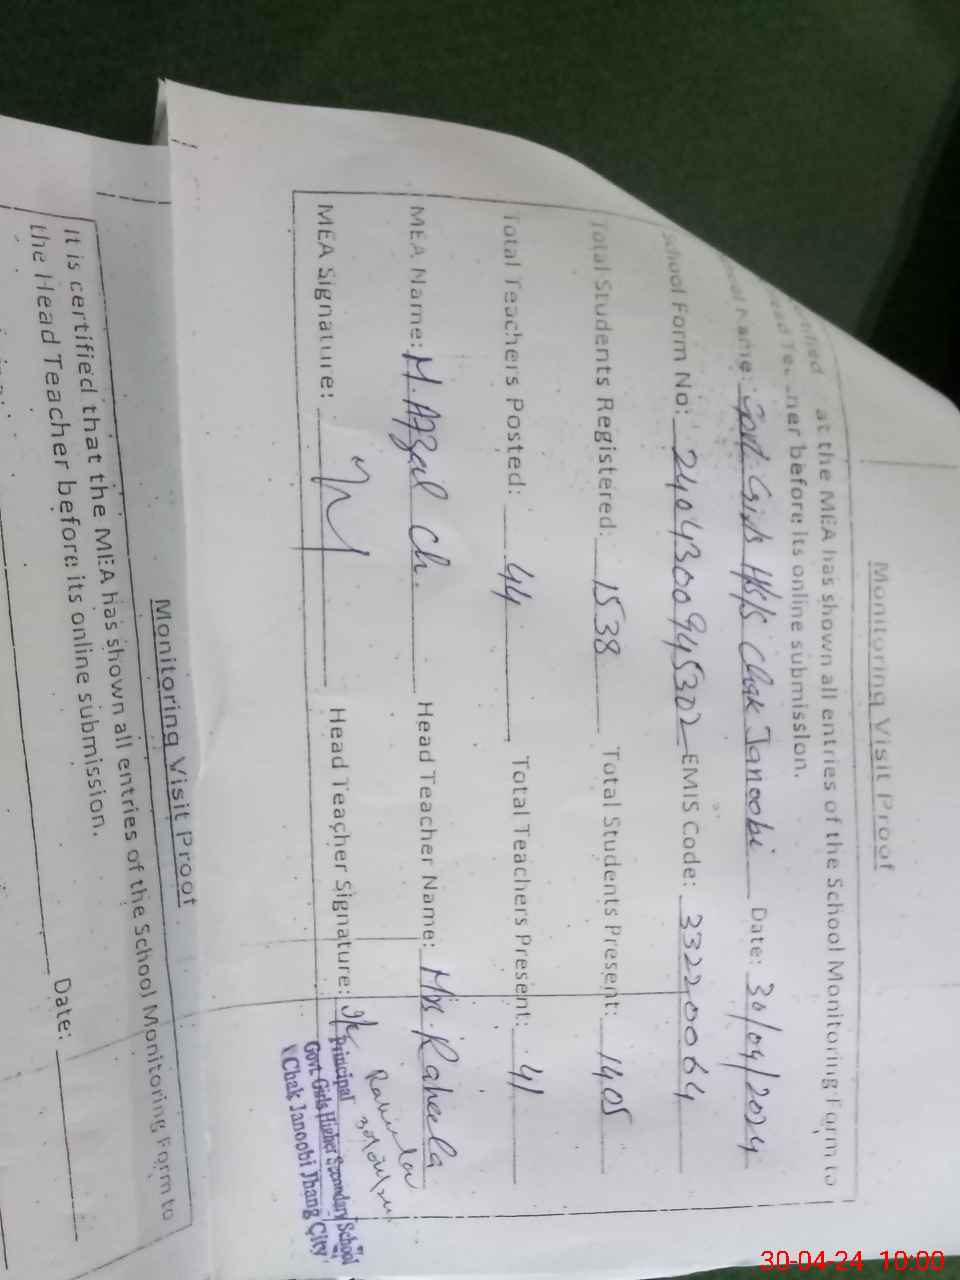 Monitoring Visit Proof
at the MEA has shown all entries of the School Monitoring Form to
before its online submission.
Name: Govt. Girls H/S/S Chak Janoobi Date: 30/04/2024
School Form No: 2404300945302 EMIS Code: 33220064
Total Students Registered: 1538 Total Students Present: 1405
Total Teachers Posted: 44 Total Teachers Present: 41
MEA Name: M. Afzal Ch. Head Teacher Name: Mrs. Raheela
MEA Signature: Head Teacher Signature:
Principal
Govt. Girls Higher Secondary School
Chak Janoobi Jhang City
Monitoring Visit Proof
It is certified that the MEA has shown all entries of the School Monitoring Form to
the Head Teacher before its online submission.
Date:
30-04-24 10:00